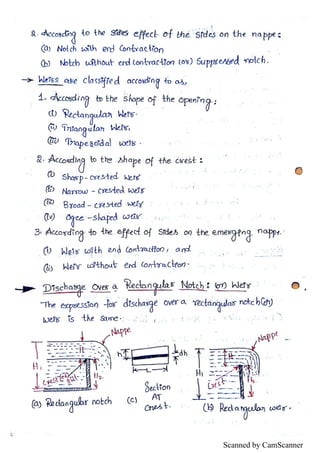 2. According to the sides effect of the sides on the nappe:
(a) Notch with end Contraction
(b) Notch without end Contraction (or) Suppressed notch.
→ Weirs are classified according to as,
1. According to the shape of the opening:
(i) Rectangular Weir.
(ii) Triangular Weir,
(iii) Trapezoidal weir.
2. According to the shape of the crest:
(i) Sharp-crested weir
(ii) Narrow-crested weir
(iii) Broad-crested weir
(iv) Ogee-shaped weir
3. According to the effect of sides on the emerging nappe.
(i) Weir with end contraction, and
(ii) Weir without end Contraction.
→ Discharge Over a Rectangular Notch: (or) Weir
The expression for discharge over a rectangular notch (or)
weir is the same.
Nappe
Nappe
H₁
H₂
h
dh
L
H₁
Crest
Section
AT
Crest.
(a) Rectangular notch
(c)
(b) Rectangular weir.
Scanned by CamScanner